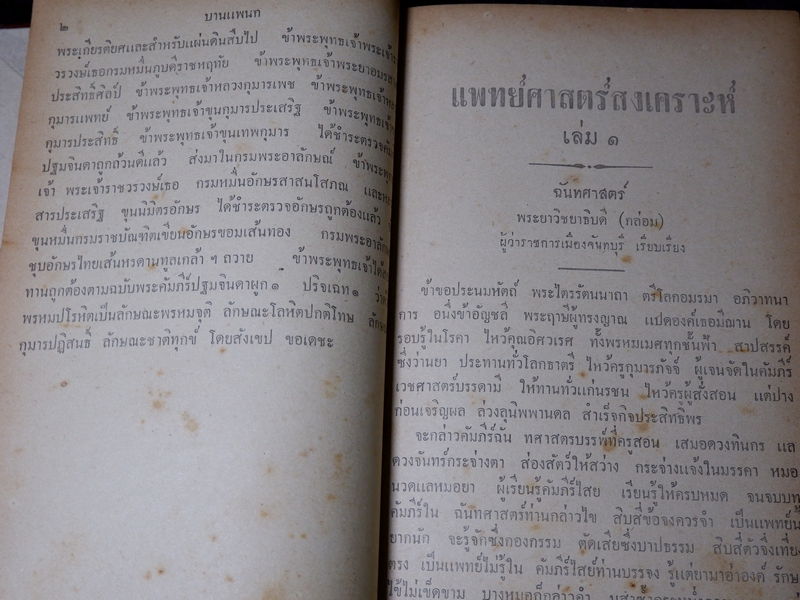 ๒
บานแพนก
พระเกียรติยศและสำหรับแผ่นดินสืบไป ข้าพระพุทธเจ้าพระเจ้า
วรวงษ์เธอกรมหมื่นภูบดีราชหฤทัย ข้าพระพุทธเจ้าพระยาอมร
ประสิทธิ์ศิลป์ ข้าพระพุทธเจ้าหลวงกุมารเพช ข้าพระพุทธเจ้า
กุมารแพทย์ ข้าพระพุทธเจ้าขุนกุมารประเสริฐ ข้าพระพุทธเจ้า
กุมารประสิทธิ์ ข้าพระพุทธเจ้าขุนเทพกุมาร ได้ชำระตรวจ
ปฐมจินดาถูกล้วนดีแล้ว ส่งมาในกรมพระอาลักษณ์ ข้าพระพุทธ
เจ้า พระเจ้าราชวรวงษ์เธอ กรมหมื่นอักษรสาสนโสภณ และ
สารประเสริฐ ขุนนิมิตรอักษร ได้ชำระตรวจอักษรถูกต้องแล้ว
ขุนหมื่นกรมราชบัณฑิตเขียนอักษรขอมเส้นทอง กรมพระอาลักษ
ชุบอักษรไทยเส้นหรดานทูลเกล้า ฯ ถวาย ข้าพระพุทธเจ้าได้
ทานถูกต้องตามฉบับพระคัมภีร์ปฐมจินดาผูก ๑ ปริจเฉท ๑ ว่า
พรหมปโรหิตเป็นลักษณะพรหมจุติ ลักษณะโลหิตปกติโทษ ลักษ
กุมารปฏิสนธิ์ ลักษณะชาติทุกข์ โดยสังเขป ขอเดชะ
แพทย์ศาสตร์สงเคราะห์
เล่ม ๑
ฉันทศาสตร์
พระยาวิชยาธิบดี (กล่อม)
ผู้ว่าราชการเมืองจันทบุรี เรียบเรียง
ข้าขอประนมหัตถ์ พระไตรรัตนนาถา ตรีโลกอมรมา อภิวาทนา
การ อนึ่งข้าอัญชลี พระฤาษีผู้ทรงญาณ แปดองค์เธอมีฌาน โดย
รอบรู้ในโรคา ไหว้คุณอิศวเรศ ทั้งพรหมเมศทุกชั้นฟ้า สาปสรรค์
ซึ่งว่านยา ประทานทั่วโลกธาตรี ไหว้ครูกุมารภัจจ์ ผู้เจนจัดในคัมภีร์
เวชศาสตร์บรรดามี ให้ทานทั่วแก่นรชน ไหว้ครูผู้สั่งสอน แต่ปาง
ก่อนเจริญผล ล่วงลุนิพพานดล สำเร็จกิจประสิทธิ์พร
จะกล่าวคัมภีร์ฉัน ทศาสตรบรรพ์ที่ครูสอน เสมอดวงทินกร แล
ดวงจันทร์กระจ่างตา ส่องสัตว์ให้สว่าง กระจ่างแจ้งในมรรคา หมอ
นวดแลหมอยา ผู้เรียนรู้คัมภีร์ไสย เรียนรู้ให้ครบหมด จนจบบท
คัมภีร์ใน ฉันทศาสตร์ท่านกล่าวไข สิบสี่ข้อจงควรจำ เป็นแพทย์นี้
ยากนัก จะรู้จักซึ่งกองกรรม ตัดเสียซึ่งบาปธรรม สิบสี่ตัวจึ่งเที่ยง
ตรง เป็นแพทย์ไม่รู้ใน คัมภีร์ไสย์ท่านบรรจง รู้แต่ยามาอ่าองค์ รักษา
ไข้ไม่เข็ดขาม บางหมอก็กล่าวคำ